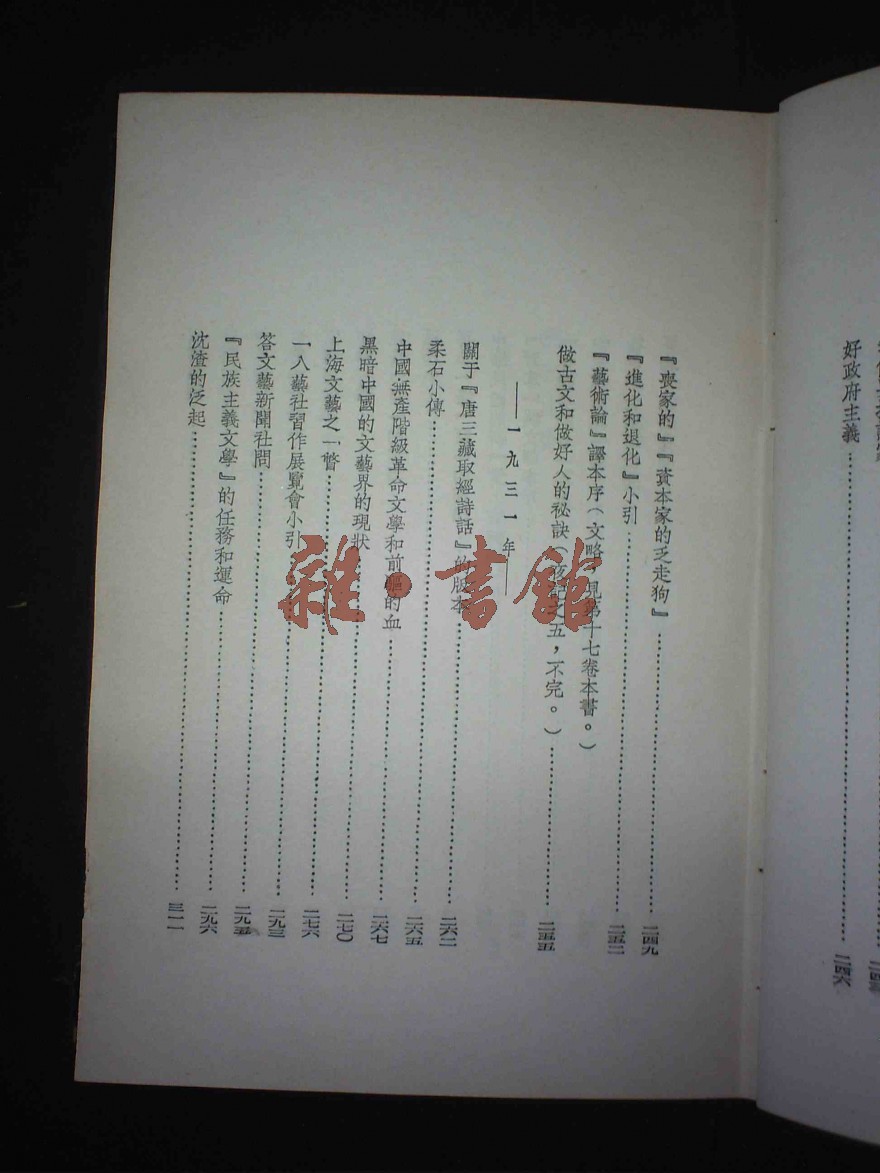 好政府主義……二四六
『喪家的』『資本家的乏走狗』……二四九
『進化和退化』小引……二五二
『藝術論』譯本序(文略,見第十七卷本書。)
做古文和做好人的秘訣(夜記之五,不完。)……二五五
——一九三一年——
關于『唐三藏取經詩話』的版本……二六二
柔石小傳……二六五
中國無產階級革命文學和前驅的血……二六七
黑暗中國的文藝界的現狀……二七〇
上海文藝之一瞥……二七六
一八藝社習作展覽會小引……二九三
答文藝新聞社問……二九五
『民族主義文學』的任務和運命……二九六
沈渣的泛起……三一一
雜·書館